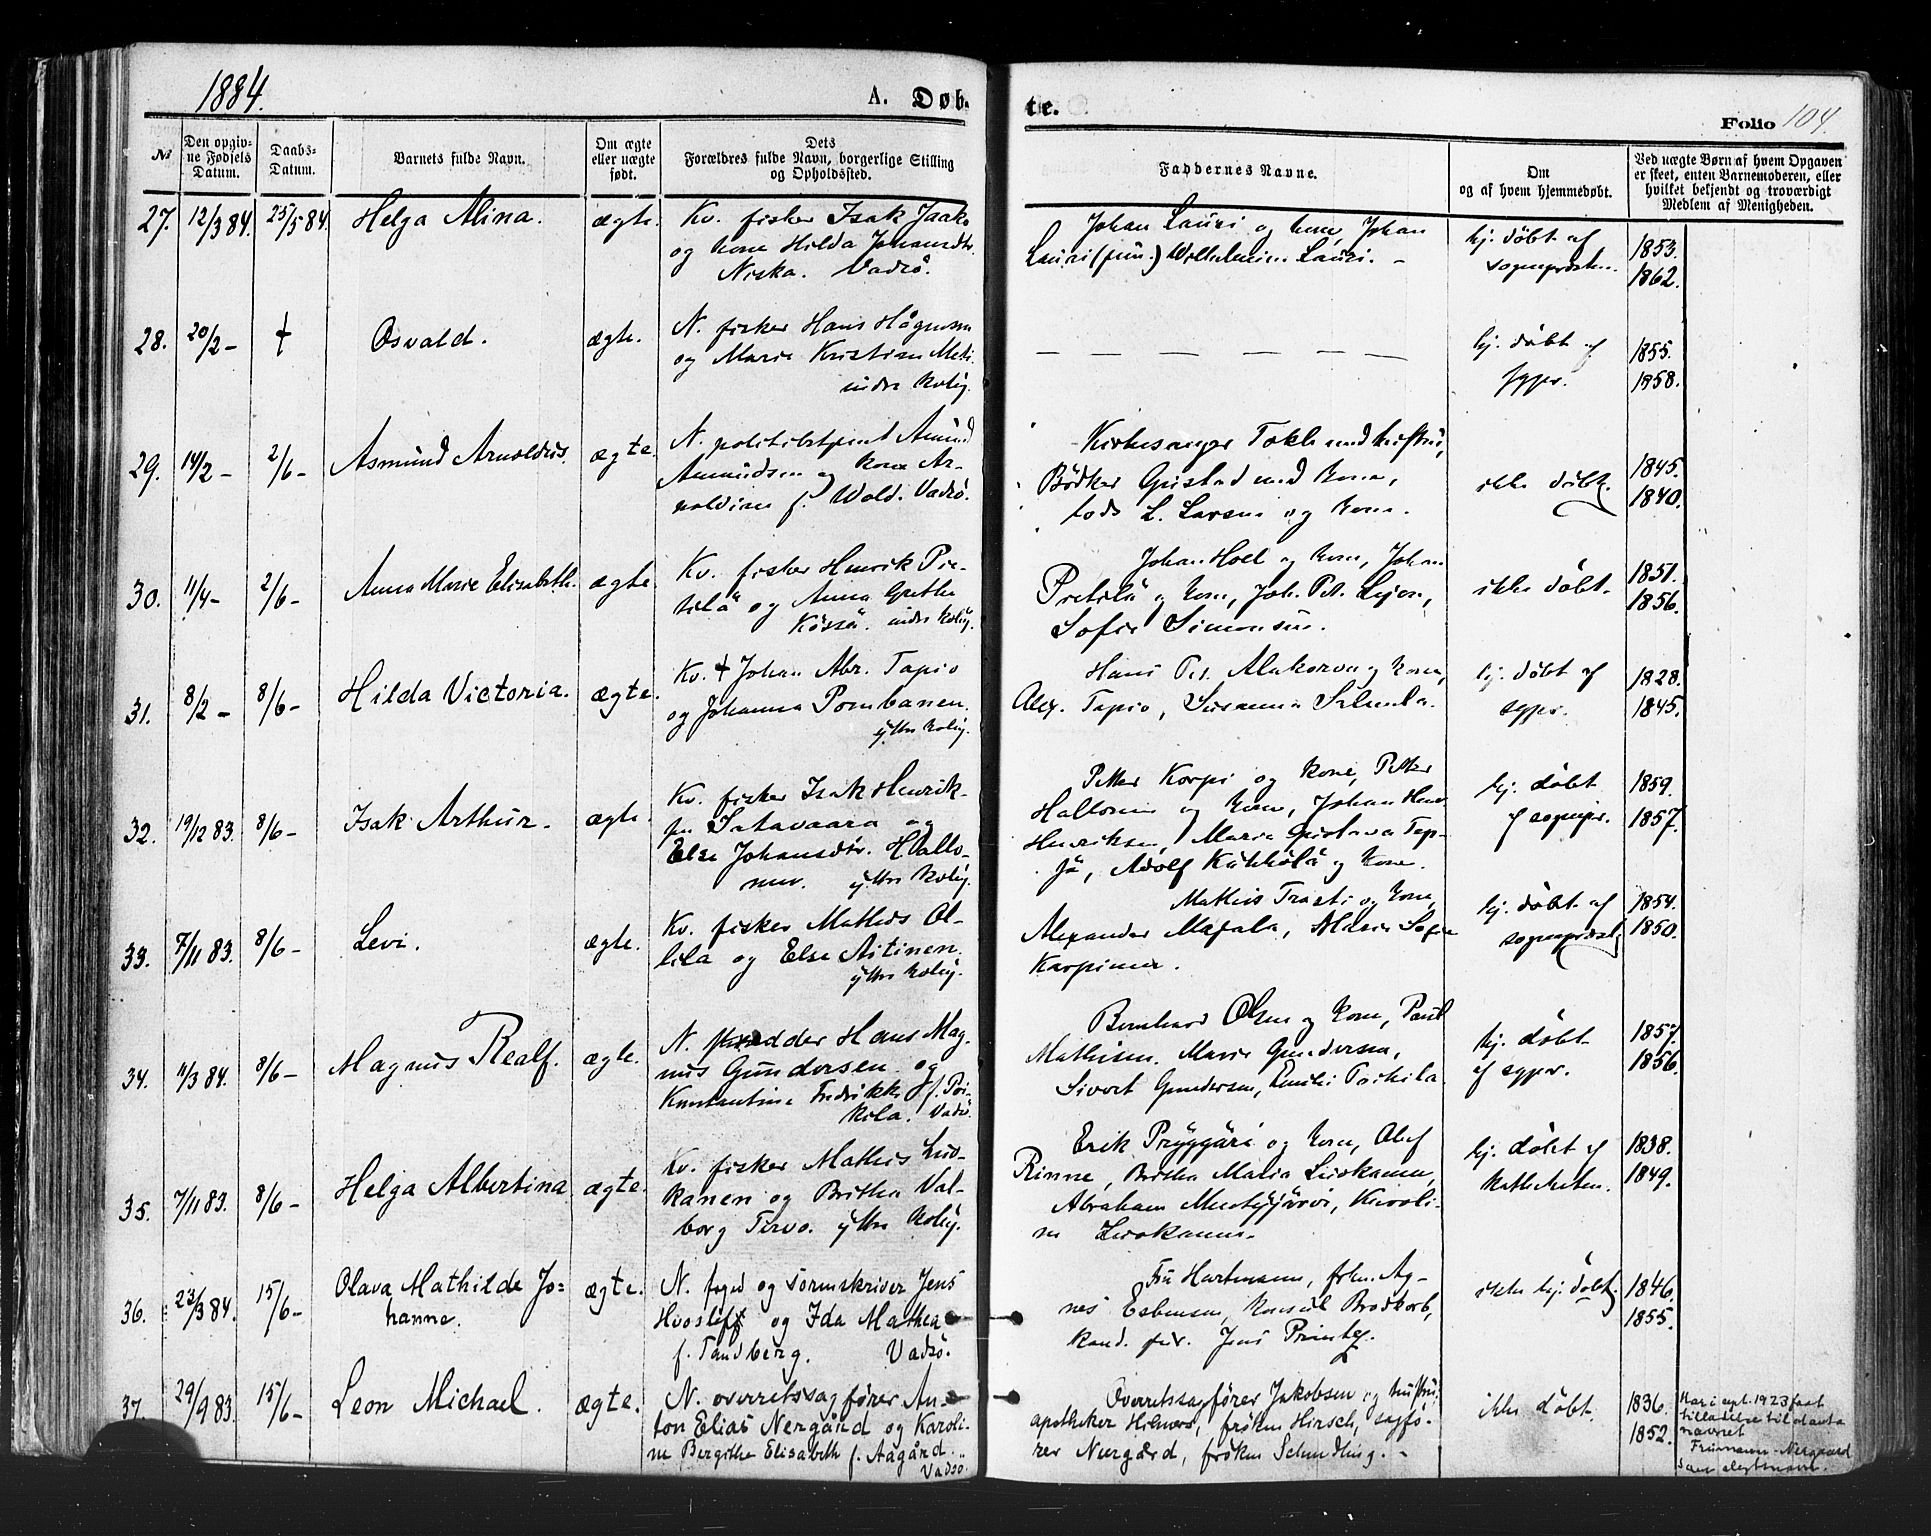 1884.
A. Døb-
te.
Folio 104.
№
Den opgiv-
ne Fødsels
Datum.
Daabs-
Datum.
Barnets fulde Navn.
Om ægte
eller uægte
født.
Dets
Forældres fulde Navn, borgerlige Stilling
og Opholdssted.
Faddernes Navne.
Om
og af hvem hjemmedøbt.
Ved uægte Børn af hvem Opgaven
er skeet, enten Barnemoderen, eller
hvilket bekjendt og troværdigt
Medlem af Menigheden.
27. 12/3 84. 25/5 84. Helga Alina. ægte. Kv. fisker Isak Jaako
og kone Hilda Johansdtr.
Niska. Vadsö.
Johan Lauri og kone, Johan
Lauri (jun.) Wilhelmine Lauri. -
hj. döbt af
sognepresten.
1853.
1862.
28. 20/2 - † Osvald. ægte. N. fisker Hans
og Marie Kristian
indre Kolig.
— — — — — — —
hj. döbt af
sgpr.
1855.
1858.
29. 14/2 - 2/6 - Asmund Arnoldus. ægte. N. politibetjent Amund
Amundsen og kone Ar-
noldine f. Wold. Vadsö.
Kirkesanger Tokle med hustru,
Bödker Gustad med kone,
lods L. Larsen og kone.
ikke döbt.
1845.
1840.
30. 11/4 - 2/6 - Anna Marie Elisabeth. ægte. Kv. fisker Henrik Pie-
tilä og Anna Grethe
indre Kolig.
Johan Hoel og kone, Johan
Pietilä og kone, Joh. Pet.
Sofie Simonsen.
ikke döbt.
1851.
1856.
31. 8/2 - 8/6 - Hilda Victoria. ægte. Kv. † Johan Abr. Tapio
og Johanna Pornbanen.
ytre Kolig.
Hans Pet. Alakorva og kone,
Alex. Tapio, Susanna
hj. döbt af
sgpr.
1828.
1845.
32. 19/12 83. 8/6 - Isak Arthur. ægte. Kv. fisker Isak Henrik-
sen Satavaara og
Else Johansdtr. Hallo-
nen. ytre Kolig.
Petter Korpi og kone, Petter
Hallonen og kone, Johan
Henriksen, Maria Gustava Tap-
jo, Adolf Kükkölä og kone.
hj. döbt
af sognepr.
1859.
1857.
33. 7/11 83. 8/6 - Levi. ægte. Kv. fisker Mathis Ol-
lila og Else Aitinen.
ytre Kolig.
Mathis Trasti og kone,
Alexander Majala, Marie Sofie
Karpinen.
hj. döbt af
sognepræst
1854.
1850.
34. 11/3 84. 8/6 - Magnus Realf. ægte. N. Hans Mag-
nus Gundersen og
Konstantine Fredrikke f. Poi-
kila. Vadsö.
Bernhard Olsen og kone, Paul
Mathisen, Marie Gundersen,
Sivert Gundersen, Emilie Poikila.
hj. döbt
af sgpr.
1857.
1856.
35. 7/11 83. 8/6 - Helga Albertina ægte. Kv. fisker Mathis Luo-
kanen og Britha Val-
borg Tervo. ytre Kolig.
Erik Pryggäri og kone, Olef
Rinne, Britha Maria Luokanen,
Abraham Kuoli-
ne Luokanen.
hj. döbt af
kateketen.
1838.
1849.
36. 23/3 84. 15/6 - Olava Mathilde Jo-
hanne. ægte. N. foged og sorenskriver Jens
Hvoslef og Ida Mathea
f. Tandberg. Vadsö.
Fru Hartmann, frkn. Ag-
nes Esbensen, konsul Brodtkorb,
kand. jur. Jens
ikke hj. döbt
1846.
1855.
37. 29/9 83. 15/6 - Leon Michael. ægte. N. overretssagförer An-
ton Elias Nergård og Karoli-
ne Bergithe Elisabeth f. Aagård
Vadsö.
Overretssagförer Jakobsen og hustru,
apotheker fröken Hirsch, sagfö-
rer Nergærd, fröken Schmdling. -
ikke döbt.
1836.
1852.
Har i sept. 1923 faat
tilladelse til at anta
navnet
Frimann-Nergaard
som slegtsnavn.